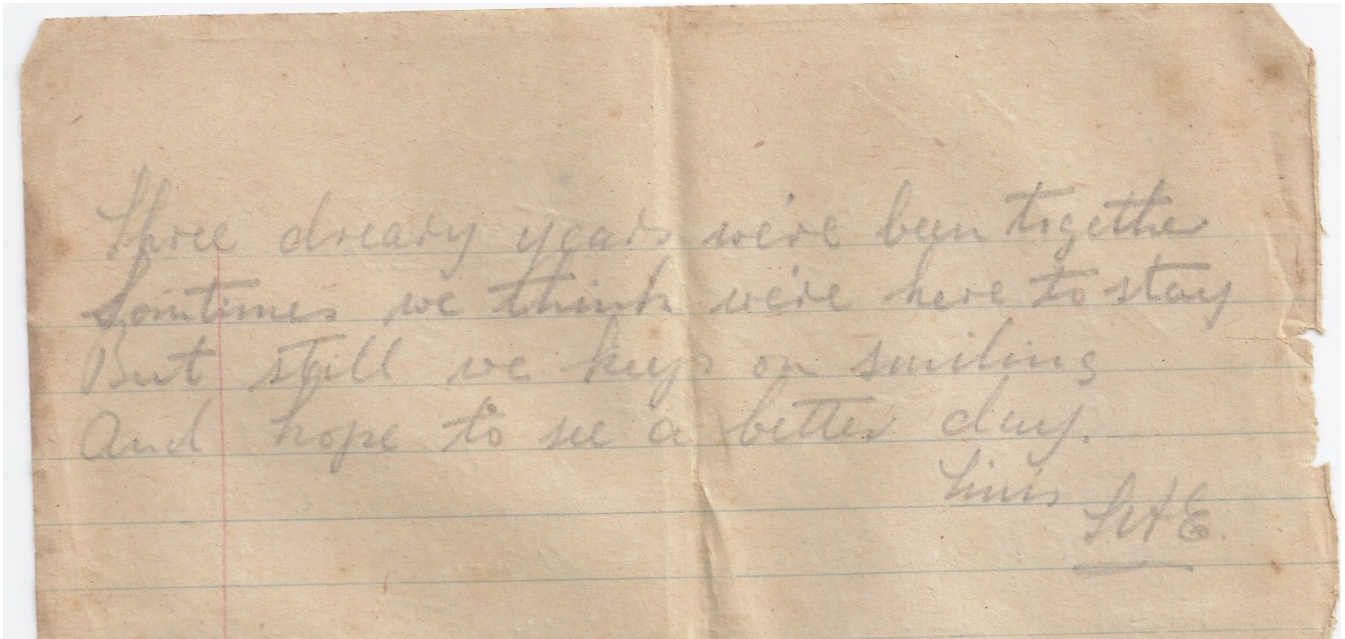 Three dreary years we've been together
Somtimes we think we're here to stay
But still we keep on smiling
And hope to see a better day.
Finis